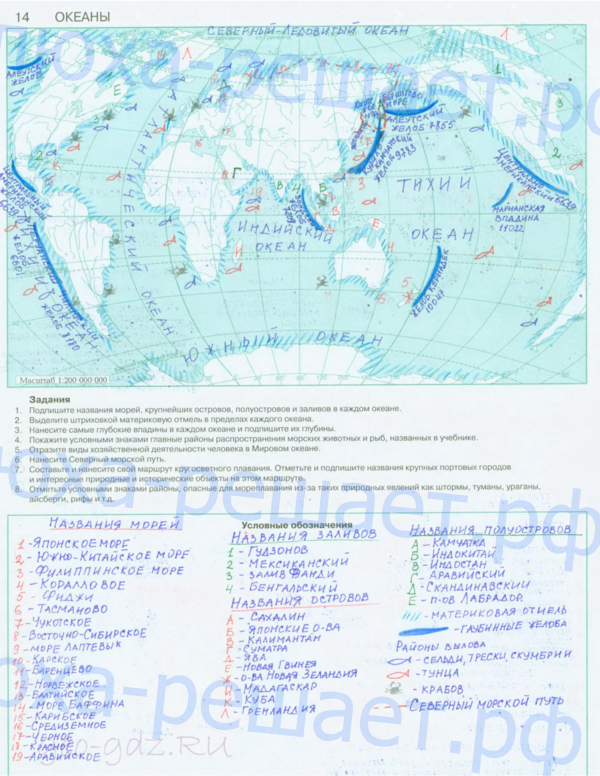 14 ОКЕАНЫ
СЕВЕРНЫЙ ЛЕДОВИТЫЙ ОКЕАН
АЛЕУТСКИЙ
ЖЕЛОБ
АТЛАНТИЧЕСКИЙ ОКЕАН
МОРЕ
АЛЕУТСКИЙ
ЖЕЛОБ 7855
ТИХИЙ
ОКЕАН
МАРИАНСКАЯ
ВПАДИНА
11022
ИНДИЙСКИЙ
ОКЕАН
ТИХИЙ
ОКЕАН
ЮЖНЫЙ ОКЕАН
Масштаб 1:200 000 000
Задания
1. Подпишите названия морей, крупнейших островов, полуостровов и заливов в каждом океане.
2. Выделите штриховкой материковую отмель в пределах каждого океана.
3. Нанесите самые глубокие впадины в каждом океане и подпишите их глубины.
4. Покажите условными знаками главные районы распространения морских животных и рыб, названных в учебнике.
5. Отразите виды хозяйственной деятельности человека в Мировом океане.
6. Нанесите Северный морской путь.
7. Составьте и нанесите свой маршрут кругосветного плавания. Отметьте и подпишите названия крупных портовых городов
и интересные природные и исторические объекты на этом маршруте.
8. Отметьте условными знаками районы, опасные для мореплавания из-за таких природных явлений как штормы, туманы, ураганы,
айсберги, рифы и т.д.
Условные обозначения
НАЗВАНИЯ МОРЕЙ
1 - ЯПОНСКОЕ МОРЕ
2 - ЮЖНО-КИТАЙСКОЕ МОРЕ
3 - ФИЛИППИНСКОЕ МОРЕ
4 - КОРАЛЛОВОЕ
5 - ФИДЖИ
6 - ТАСМАНОВО
7 - ЧУКОТСКОЕ
8 - ВОСТОЧНО-СИБИРСКОЕ
9 - МОРЕ ЛАПТЕВЫХ
10 - КАРСКОЕ
11 - БАРЕНЦЕВО
12 - НОРВЕЖСКОЕ
13 - БАЛТИЙСКОЕ
14 - МОРЕ БАФФИНА
15 - КАРИБСКОЕ
16 - СРЕДИЗЕМНОЕ
17 - ЧЕРНОЕ
18 - КРАСНОЕ
19 - АРАВИЙСКОЕ
НАЗВАНИЯ ЗАЛИВОВ
1 - ГУДЗОНОВ
2 - МЕКСИКАНСКИЙ
3 - ЗАЛИВ ФАНДИ
4 - БЕНГАЛЬСКИЙ
НАЗВАНИЯ ОСТРОВОВ
А - САХАЛИН
Б - ЯПОНСКИЕ О-ВА
В - КАЛИМАНТАН
Г - СУМАТРА
Д - ЯВА
Е - НОВАЯ ГВИНЕЯ
Ж - О-ВА НОВАЯ ЗЕЛАНДИЯ
И - МАДАГАСКАР
К - КУБА
Л - ГРЕНЛАНДИЯ
НАЗВАНИЯ ПОЛУОСТРОВОВ
А - КАМЧАТКА
Б - ИНДОКИТАЙ
В - ИНДОСТАН
Г - АРАВИЙСКИЙ
Д - СКАНДИНАВСКИЙ
Е - П-ОВ ЛАБРАДОР
- МАТЕРИКОВАЯ ОТМЕЛЬ
- ГЛУБИННЫЕ ЖЕЛОБА
РАЙОНЫ ВЫЛОВА
- СЕЛЬДИ, ТРЕСКИ, СКУМБРИИ
- ТУНЦА
- КРАБОВ
- СЕВЕРНЫЙ МОРСКОЙ ПУТЬ